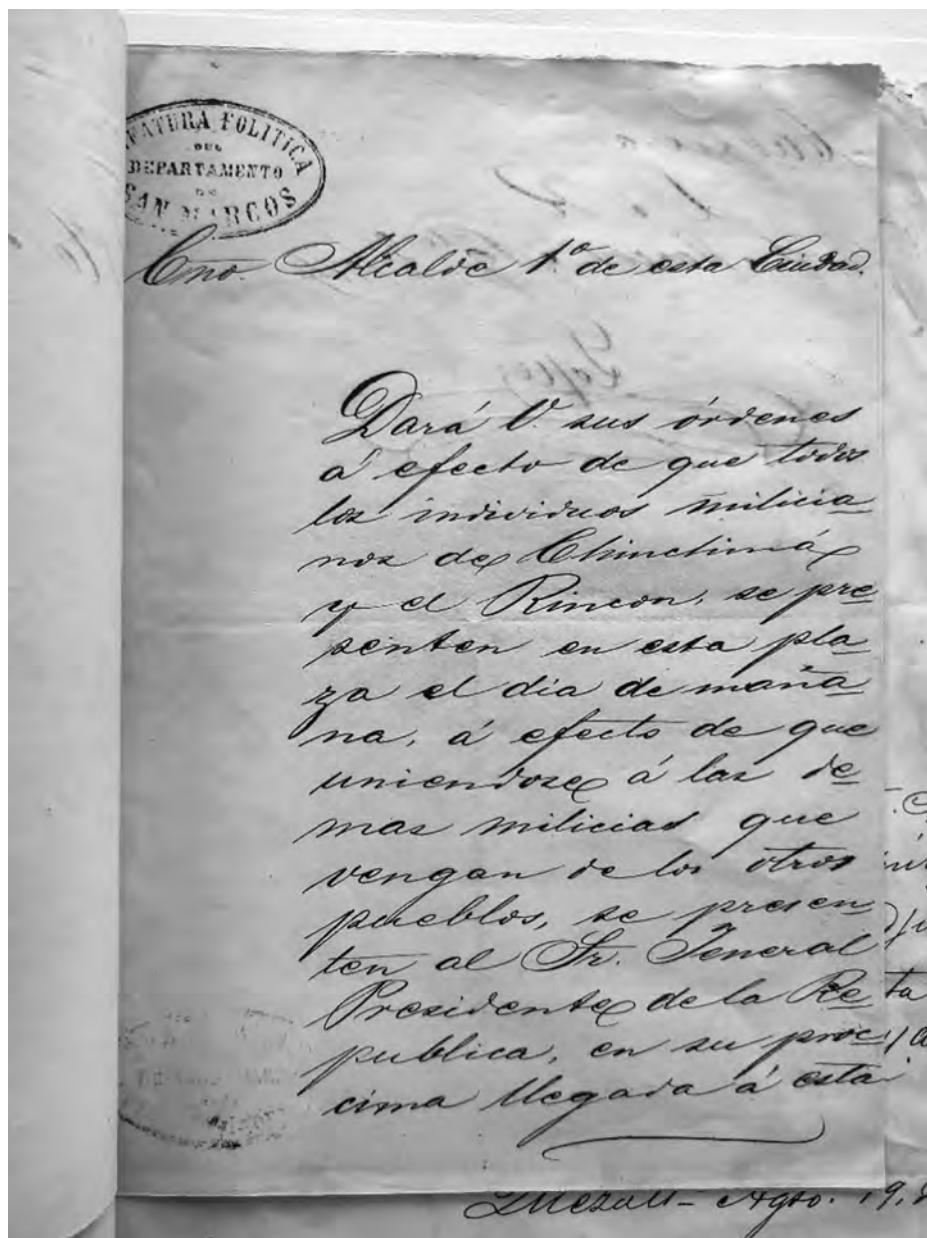 FATURA POLITICA
DEL
DEPARTAMENTO
DE
SAN MARCOS
Cno. Alcalde 1º de esta Ciudad.
Dará V. sus órdenes
á efecto de que todos
los individuos milicia
nos de Chinchimá
y el Rincon, se pre
senten en esta pla
za el dia de maña
na, á efecto de que
uniendose á las de
mas milicias que
vengan de los otros
pueblos, se presen
ten al Sr. Jeneral
Presidente de la Re
publica, en su proc
cima llegada á esta
Agto. 19.